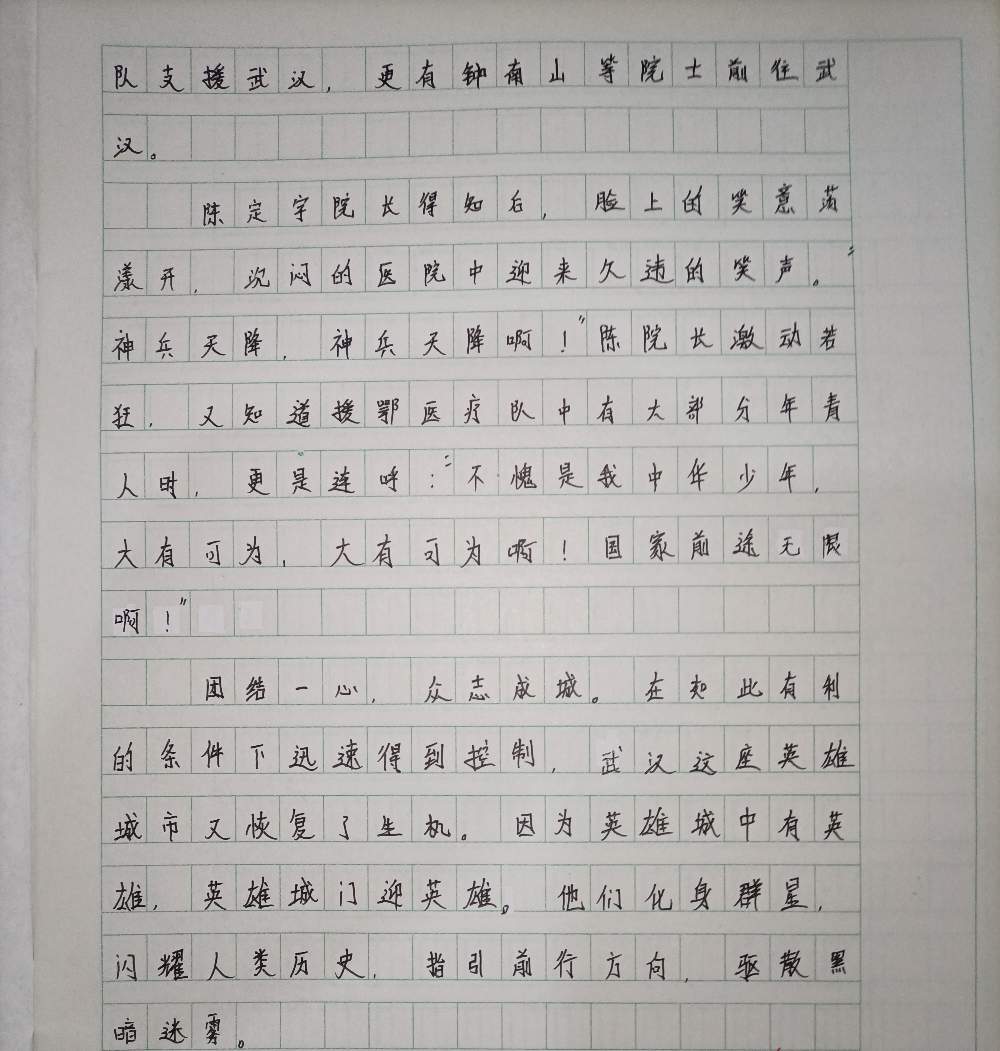 队支援武汉，更有钟南山等院士前往武
汉。
陈定宇院长得知后，脸上的笑意荡
漾开，沉闷的医院中迎来久违的笑声。“
神兵天降，神兵天降啊！”陈院长激动若
狂，又知道援鄂医疗队中有大部分年青
人时，更是连呼：“不愧是我中华少年，
大有可为，大有可为啊！国家前途无限
啊！”
团结一心，众志成城。在如此有利
的条件下迅速得到控制，武汉这座英雄
城市又恢复了生机。因为英雄城中有英
雄，英雄城门迎英雄。他们化身群星，
闪耀人类历史，指引前行方向，驱散黑
暗迷雾。